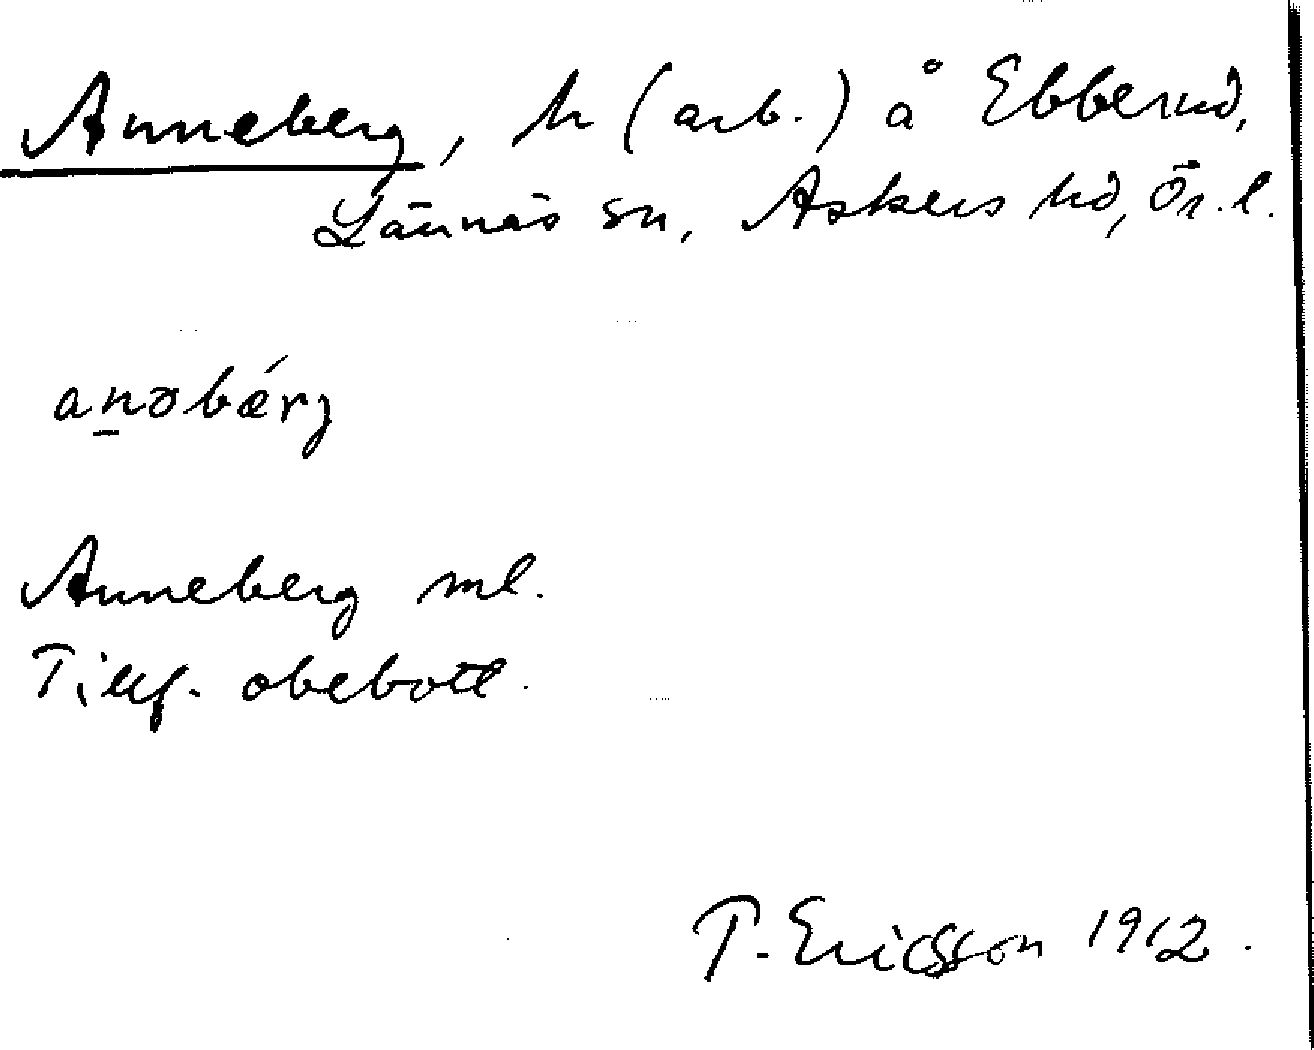 Anneberg, h (arb.) å Ebberud,
Lännäs sn, Askers hd, Ör. l.
anəbærj
Anneberg ml.
Tillf. obebott.
T. Ericsson 1912.